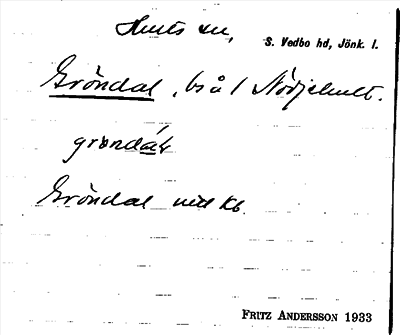 Hults sn,
S. Vedbo hd, Jönk. l.
Gröndal, bs å 1 Nödjehult.
grøndáɫ
Gröndal mtl Kb.
FRITZ ANDERSSON 1933